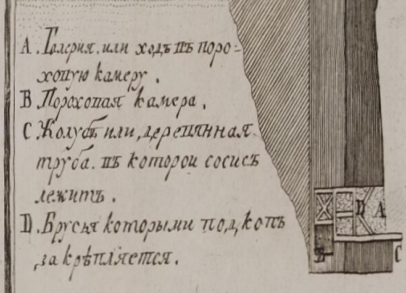 A. Галерия. или ходъ въ поро-
ховую камеру.
B Пороховая камера.
C Жолубъ или, деревянная
труба. въ которои сосисъ
лежитъ.
D. Брусья которыми подкопъ
закрѣпляется.
D A
B C